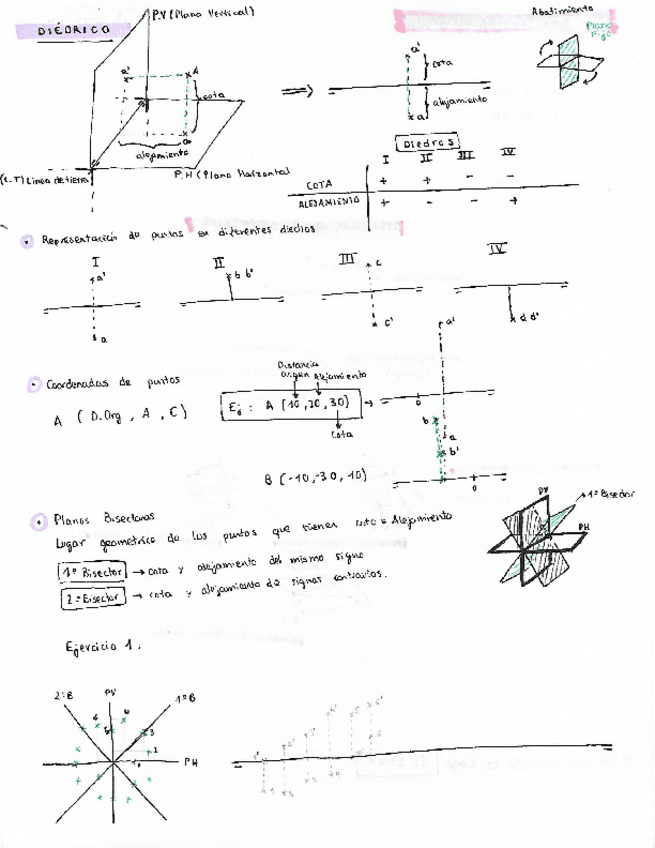 DIÉDRICO
P.V (Plano Vertical)
Abatimiento
Plano Fijo
a'
A
cota
a
alejamiento
(L.T) Linea de tierra
P.H (Plano Horizontal
a'
cota
alejamiento
a
Diedros
I II III IV
COTA + + - -
ALEJAMIENTO + - - +
Representación de puntos en diferentes diedros
I II III IV
a'
a
b b'
c
c'
d d'
Coordenadas de puntos
A ( D.Org , A , C )
Distancia origen
Alejamiento
Ej : A (10, 20, 30)
Cota
a'
0
a
B (-10, -30, -10)
b
b'
0
Planos Bisectores
Lugar geometrico de los puntos que tienen cota = Alejamiento
1º Bisector → cota y alejamiento del mismo signo
2º Bisector → cota y alejamiento de signos contrarios.
PV
1º Bisector
PH
Ejercicio 1.
2º B
PV
1º B
PH